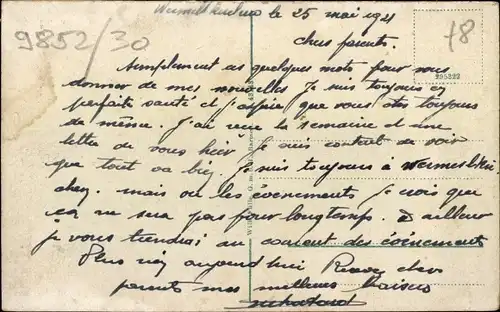 9852/30
le 25 mai 1921
18
chers parents.
195222
simplement ces quelques mots pour vous
donner de mes nouvelles Je suis toujours en
parfaite santé et j'espère que vous êtes toujours
de même. J'ai reçu la semaine et une
lettre de vous hier Je suis content de voir
que tout va bien. Je suis toujours à Wermelskir
chen. mais vu les événements je crois que
ça ne sera pas pour longtemps. D'ailleur
je vous tiendrai au courant des événements
Plus rien aujourd'hui Recevez chers
parents mes meilleurs baisers